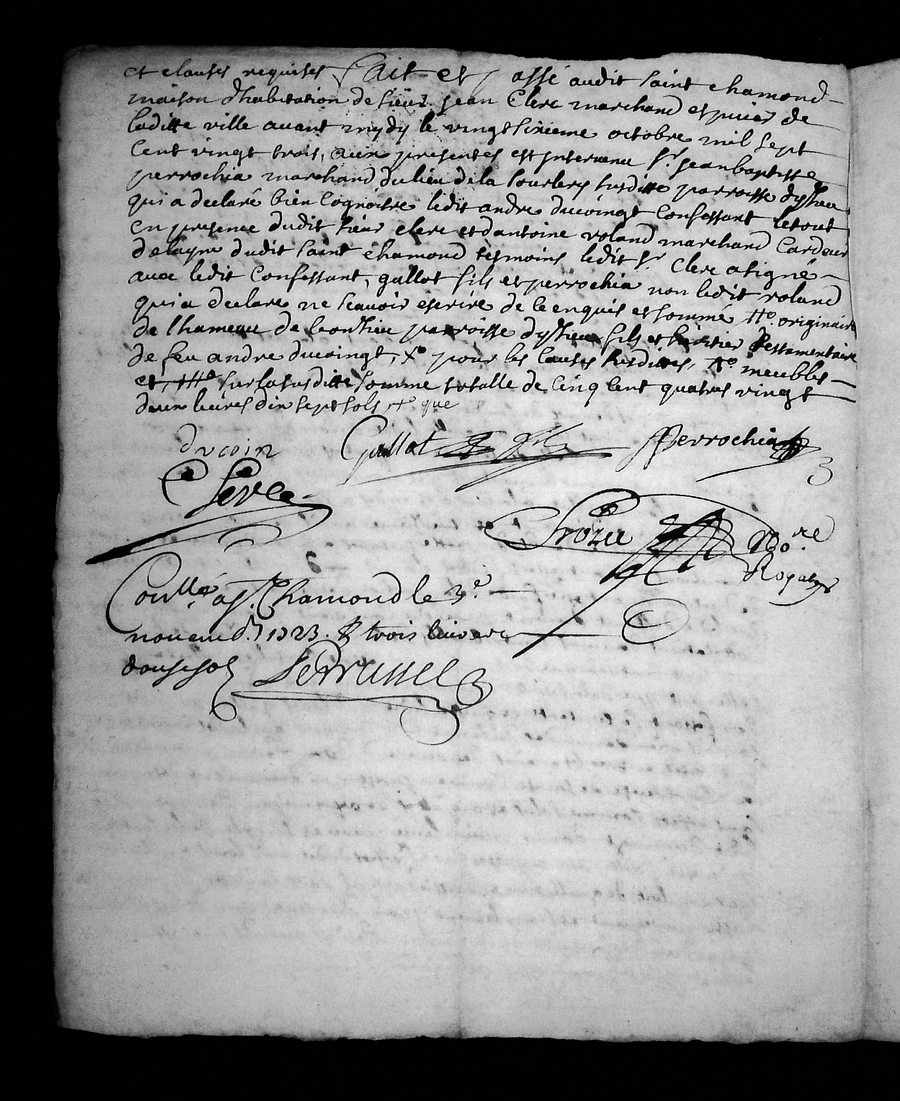 et clauses requises fait et passé audit saint chamond
maison d'habitation de sieur jean Clerc marchand espicier de
laditte ville avant mydy le vingtsixieme octobre mil sept
cent vingt trois, aux presentes est intervenu Sr. jean baptiste
perrochia marchand du lieu de la susditte parroisse
qui a declaré bien cognoitre ledit andre ducoingt confessant le tout
en presence dudit sieur clerc et d'antoine roland marchand cardeur
de layne dudit saint chamond tesmoins ledit sr. Clerc a signé
avec ledit confessant, gallot fils et perrochia non ledit roland
qui a declaré ne scavoir escrire de ce enquis et sommé originaire
de l'hameau de parroisse fils et heritier testamentaire
de feu andre ducoingt, pour les causes susdittes, meubles
et sur la susditte somme totalle de cinq cent quatre vingt
deux livres dix sept sols que
ducoin Gallot fils Perrochia
Clerc
no.re
Royal
Conllé a St. Chamond le 3e.
novemb. 1723. R trois livres
douse sol